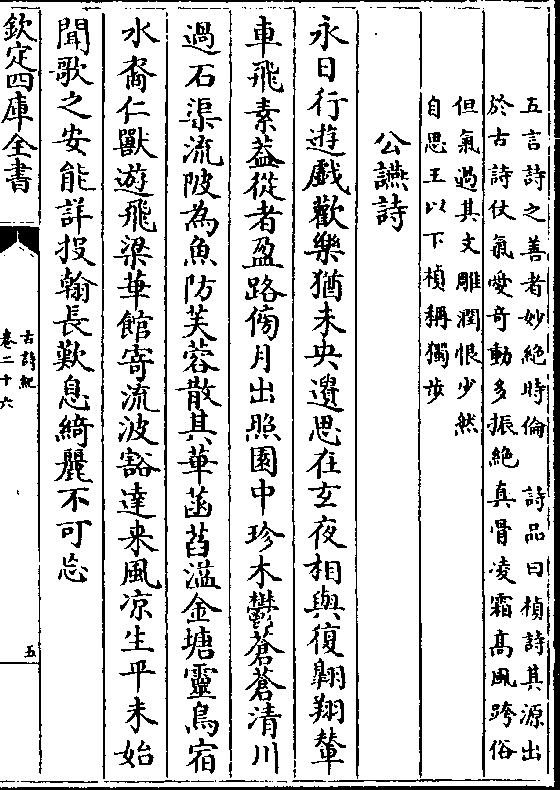 五言詩之善者妙絶時倫　詩品曰楨詩其源出
於古詩仗氣愛奇動多振絶真骨凌霜髙風跨俗
但氣過其文雕潤恨少然
自思王以下楨稱獨步
公讌詩
永日行遊戲歡樂猶未央遺思在玄夜相與復翺翔輦
車飛素葢從者盈路傍月出照園中珍木鬱蒼蒼清川
過石渠流陂為魚防芙蓉散其華菡萏溢金塘靈鳥宿
水裔仁獸遊飛梁華館寄流波豁達来風凉生平未始
聞歌之安能詳投翰長歎息綺麗不可忘
欽定四庫全書
古詩紀
卷二十六
五